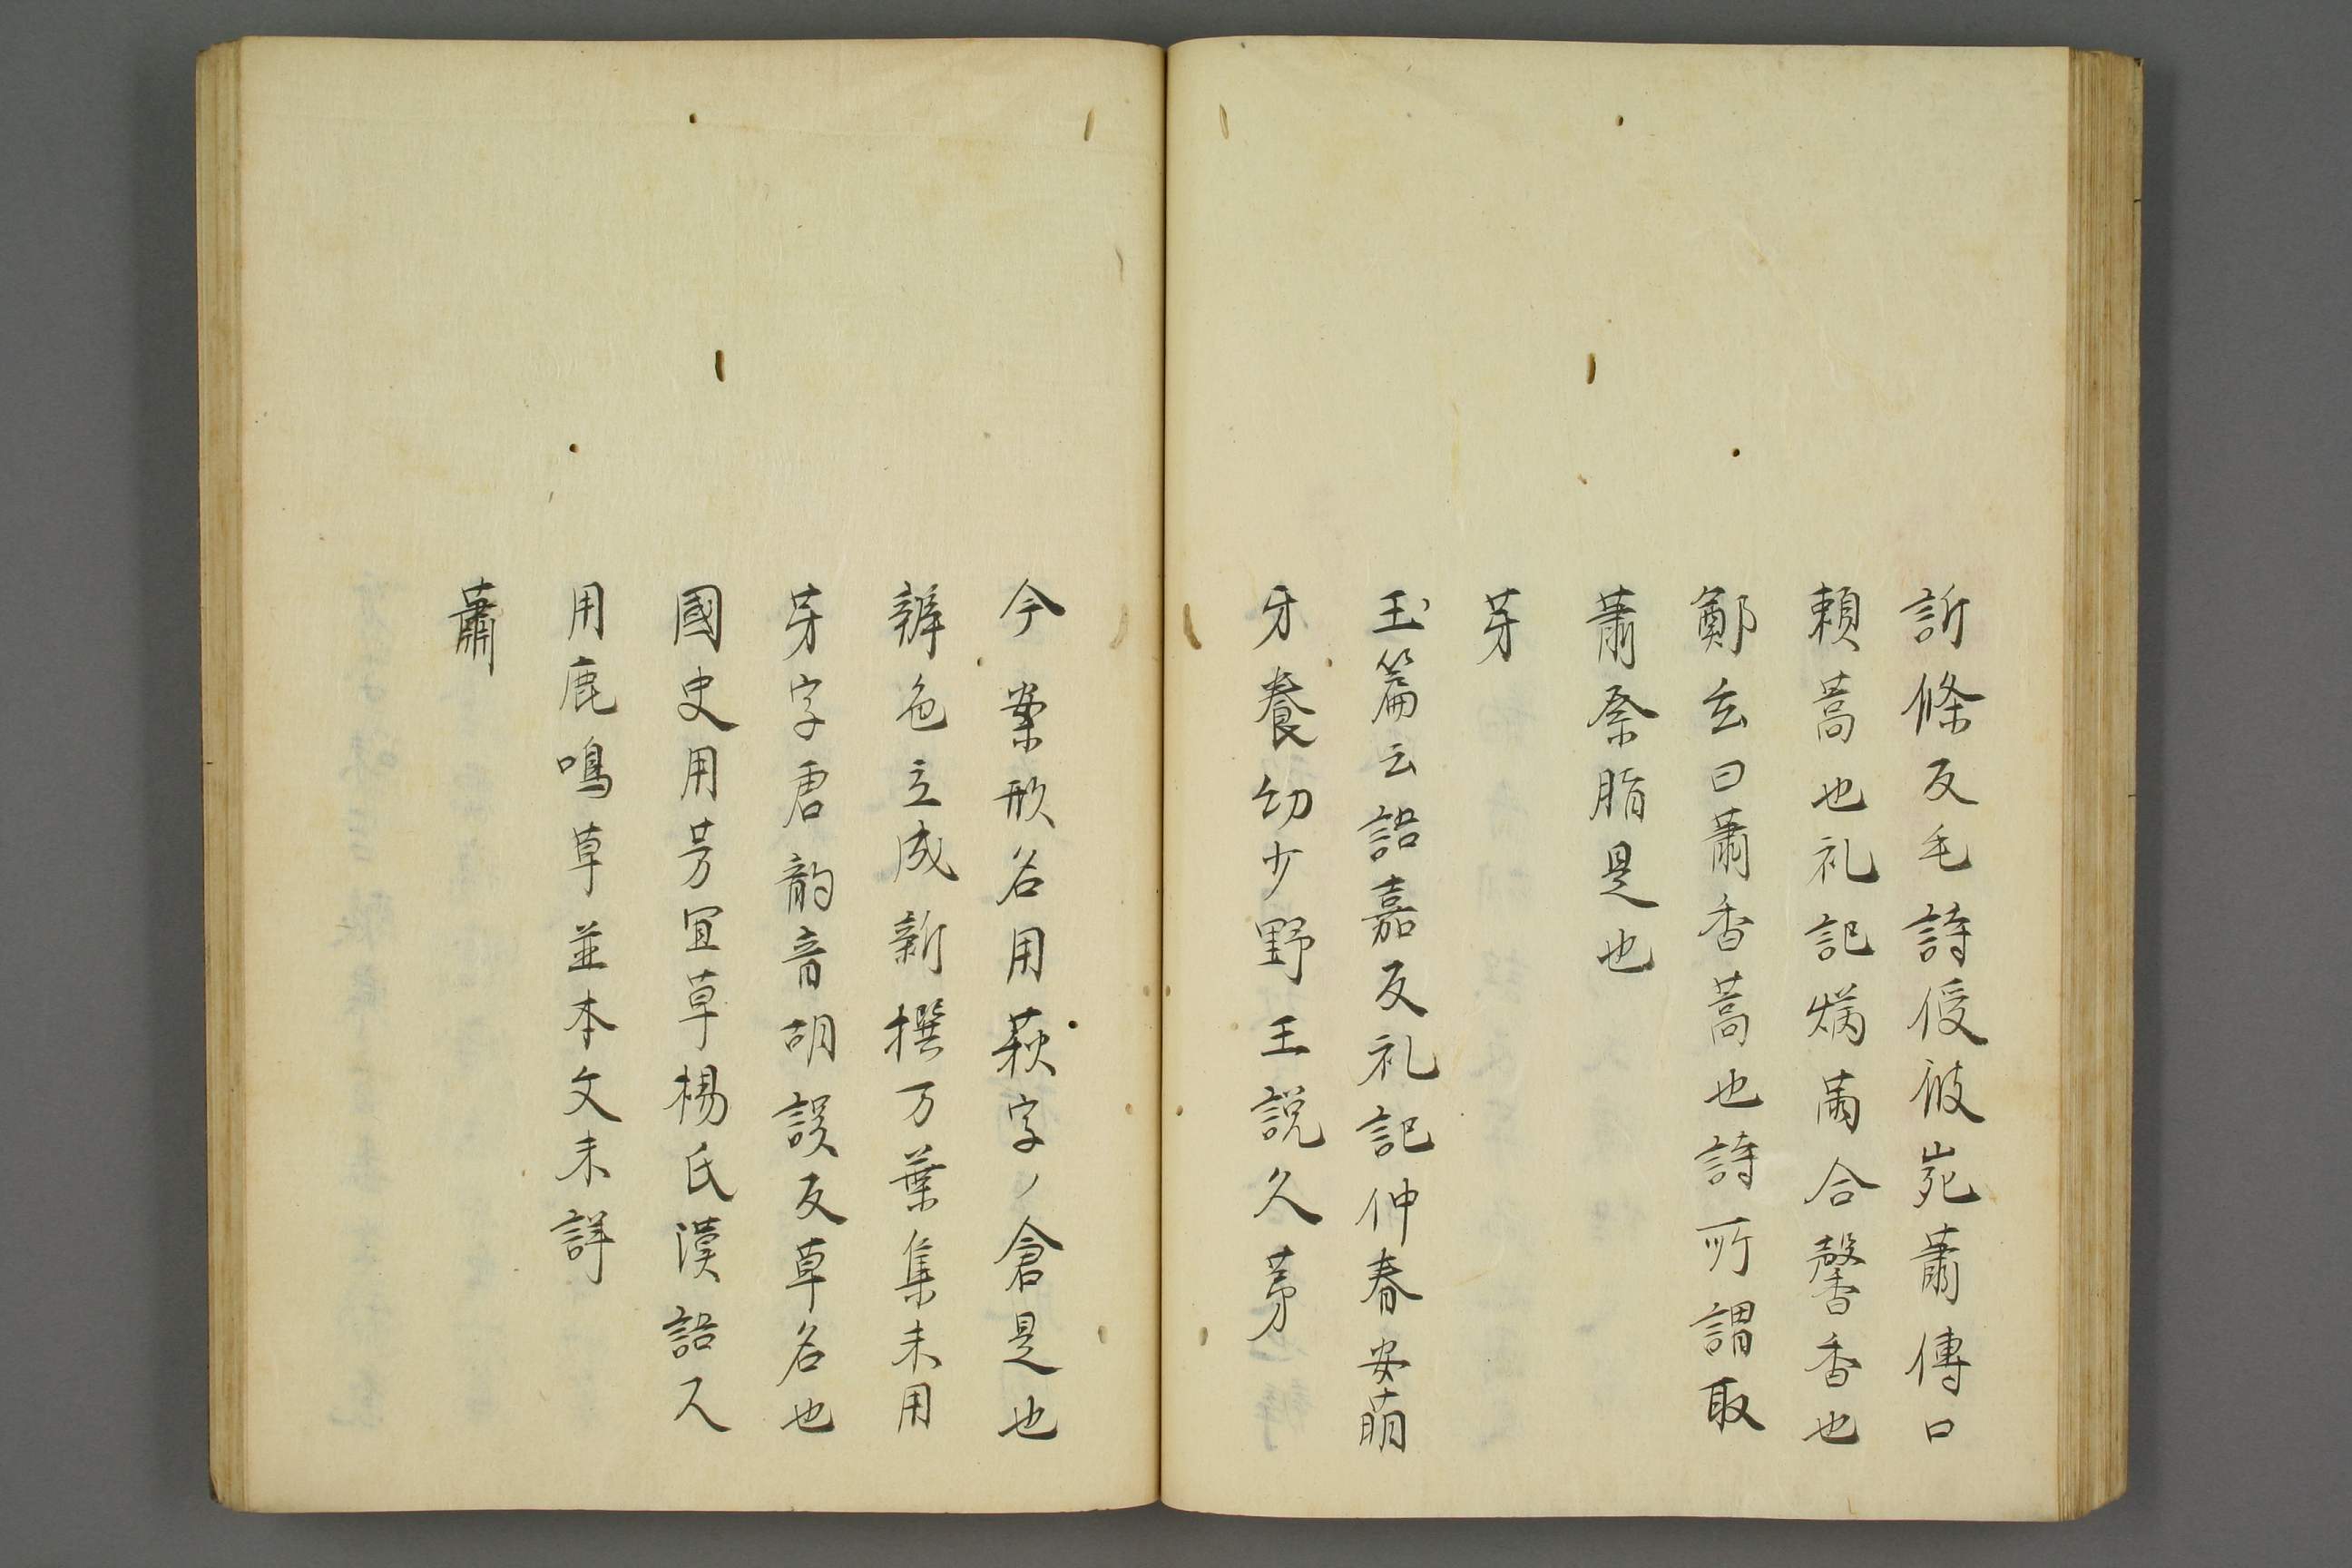 訢條反毛詩侫彼菀蕭傳曰
頼蒿也礼記焫䔥合馨香也
鄭玄曰蕭香蒿也詩所謂取
蕭祭脂是也
芽
玉篇云語嘉反礼記仲春安萠
牙養幼少野王說久芽
今案形名用萩字ノ倉是也
辨色立成新撰万葉集未用
芽字唐韵音胡誤反草名也
國史用芳冝草楊氏漢語又
用鹿鳴草並本文未詳
蕭